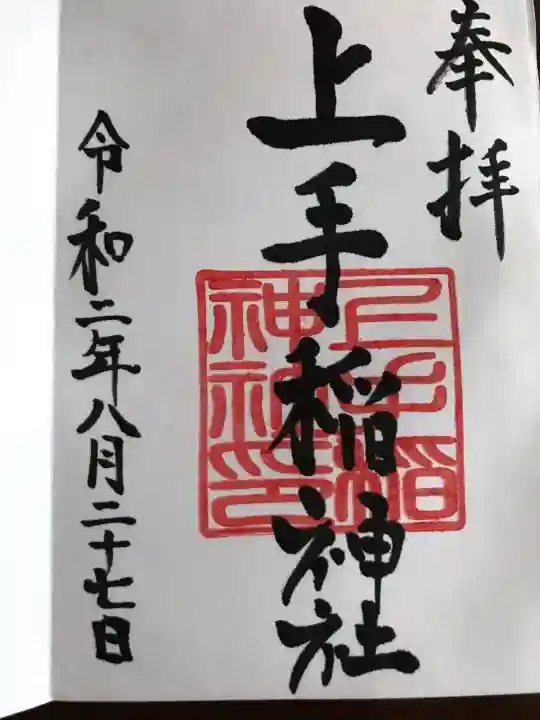 奉拝
上手稲神社
令和二年八月二十七日
上手稲
神社
神印